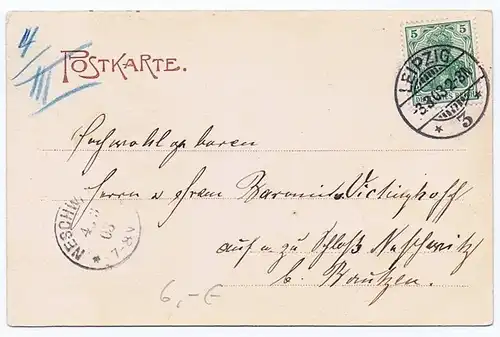 4/III
POSTKARTE.
5 5
LEIPZIG
-3.3.03.7-8N.
* 3 *
Hochwohlgeboren
Herrn u Frau Baronin Vietinghoff
auf u. zu Schloß Neschwitz
b. Bautzen.
NESCHW
4.3
03
7-8V
*
6,- €